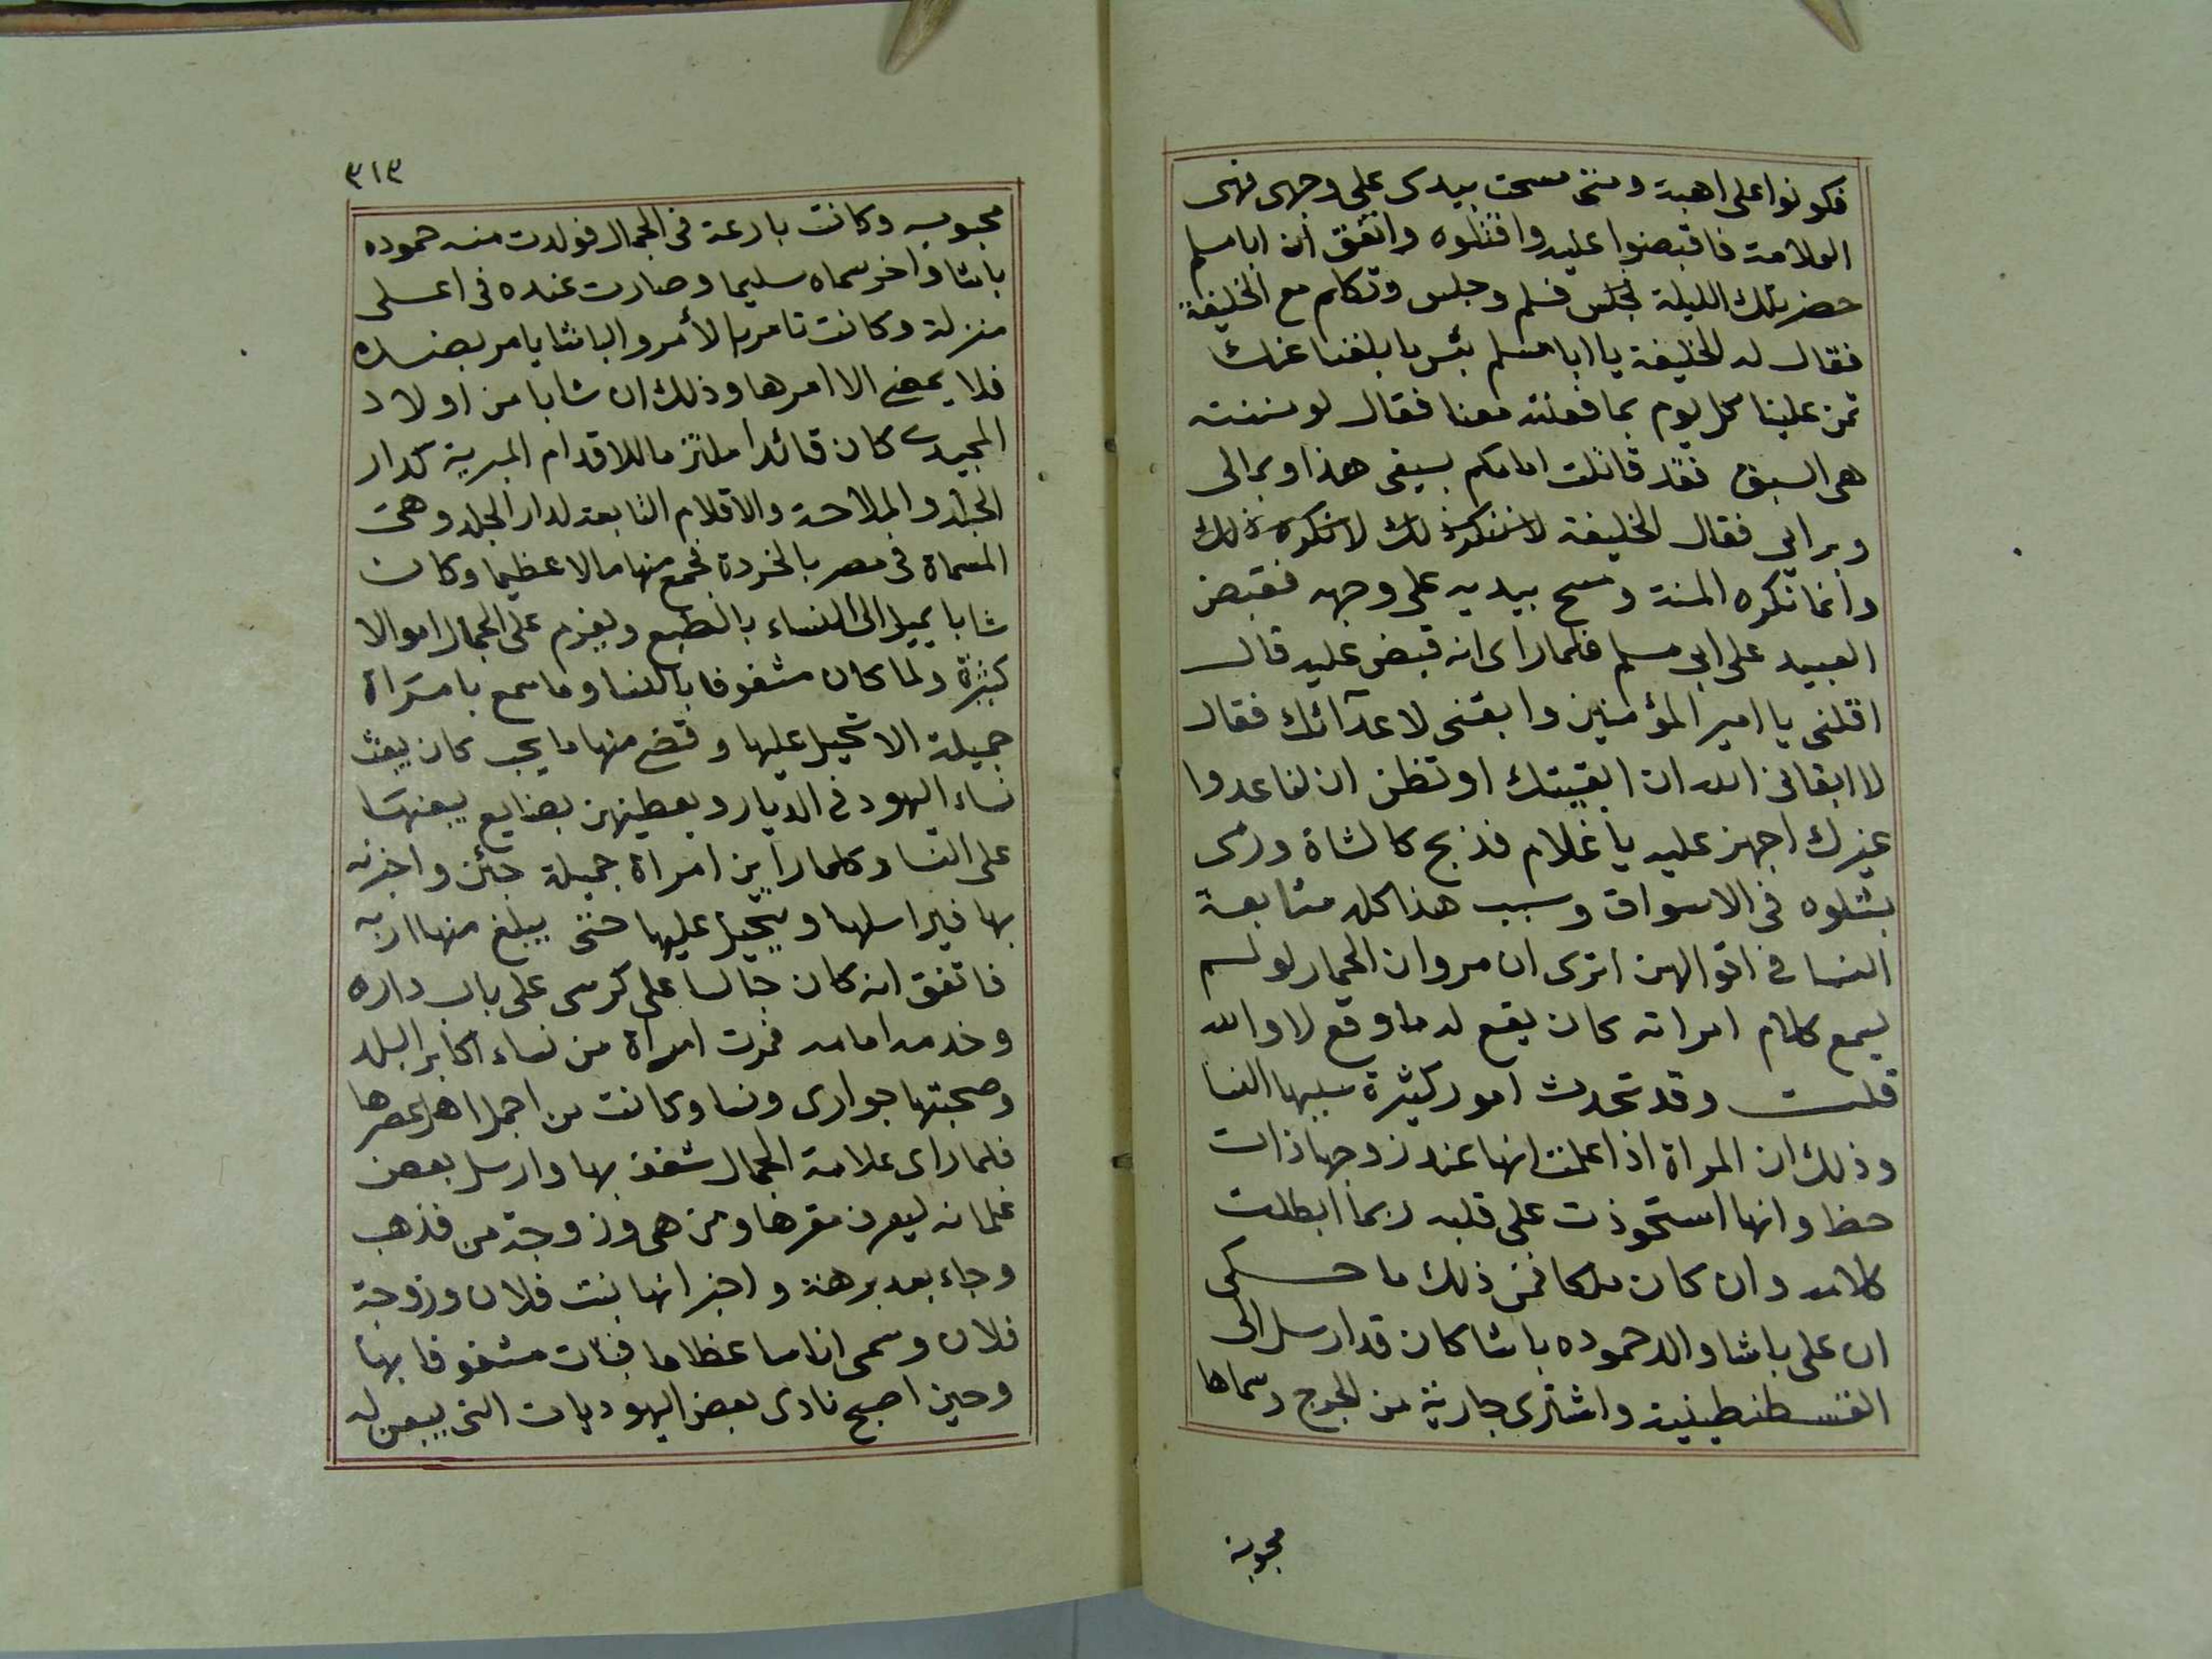 فكونوا على اهبة ومتى مسحت بيدى على وجهى فهى
العلامة فاقبضوا عليه واقتلوه واتفق ان ابا مسلم
حضر تلك الليلة لمجلس فسلم وجلس وتكلم مع الخليفة
فقال له الخليفة يا ابا مسلم بئس ما بلغنا عنك
تمن علينا كل يوم بما فعلته معنا فقال لو سننته
هى السبق فقد قاتلت امامكم بسيفى هذا وبمالى
وبرايى فقال الخليفة لا ننكر ذلك لا ننكر ذلك
وانما نكره المنة ومسح بيديه على وجهه فقبض
العبيد على ابى مسلم فلما راى انه قبض عليه قال
اقلنى يا امير المؤمنين وابقنى لاعدآئك فقال
لا ابقانى الله ان ابقيتك اوتظن ان لنا عدوا
غيرك اجهز عليه يا غلام فذبح كالشاة ورمى
بشلوه فى الاسواق وسبب هذا كله متابعة
النسا فى اقوالهن اترى ان مروان الحمار لو لم
يسمع كلام امراته كان يقع له ما وقع لا والله
قلت وقد تحدث امور كثيرة سببها النسا
وذلك ان المراة اذا علمت انها عند زوجها ذات
حظ وانها استحوذت على قلبه ربما ابطلت
كلامه وان كان ملكا فمن ذلك ما حكى
ان على باشا والد حموده باشا كان قد ارسل الى
القسطنطينية واشترى جارية من الجرج وسماها
محبوبة
٣١٣
محبوبه وكانت بارعة فى الجمال فولدت منه حموده
باشا واخر سماه سليما وصارت عنده فى اعلى
منزلة وكانت تامر بالأمر والباشا يامر بضده
فلا يمضى الا امرها وذلك ان شابا من اولاد
المجيدى كان قائدا ملتزما للاقدام الميرية كدار
الجلد والملاحة والاقلام التابعة لدار الجلد وهى
المسماة فى مصر بالخردة فجمع منها مالا عظيما وكان
شابا يميل الى النساء بالطبع ويغرم على الجمال اموالا
كثيرة ولما كان مشغوفا بالنسا وما سمع بامراة
جميلة الا تحيل عليها وقضى منها ما يجب كان يبعث
نساء اليهود فى الديار ويعطيهن بضايع يبعنها
على النسا وكلما راين امراة جميلة جئن واخبرنه
بها فيراسلها ويتحيل عليها حتى يبلغ منها اربه
فاتفق انه كان جالسا على كرسى على باب داره
وخدمه امامه فمرت امراة من نساء اكابر البلد
وصحبتها جوارى ونسا وكانت من اجمل اهل عصرها
فلما راى علامة الجمال شغف بها وارسل بعض
غلمانه ليعرف مقرها ومن هى وزوجة من فذهب
وجاء بعد برهة واخبر انها بنت فلان وزوجة
فلان وسمى اناسا عظاما فبات مشغوفا بها
وحين اصبح نادى بعض اليهوديات التى يبعن له